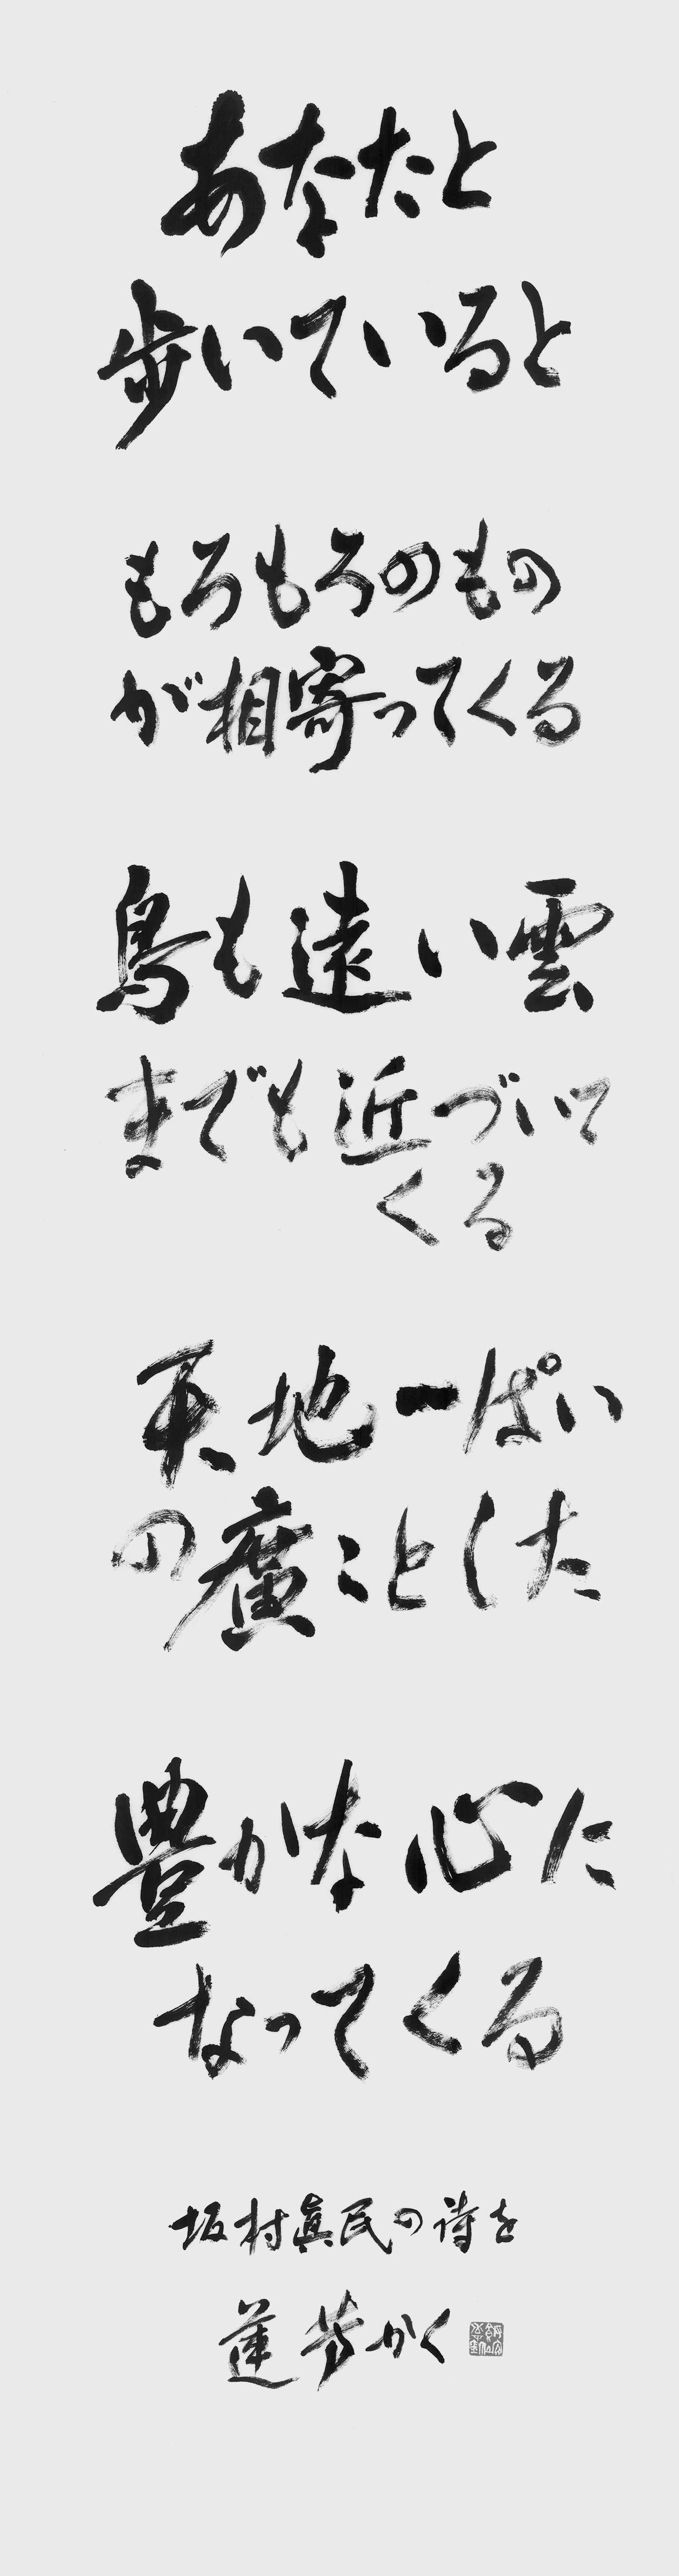 あなたと
歩いていると
もろもろのもの
が相寄ってくる
鳥も遠い雲
までも近づいて
くる
天地一ぱい
の廣こどした
豊かな心に
なってくる
坂村眞民の詩を
蓮芳かく